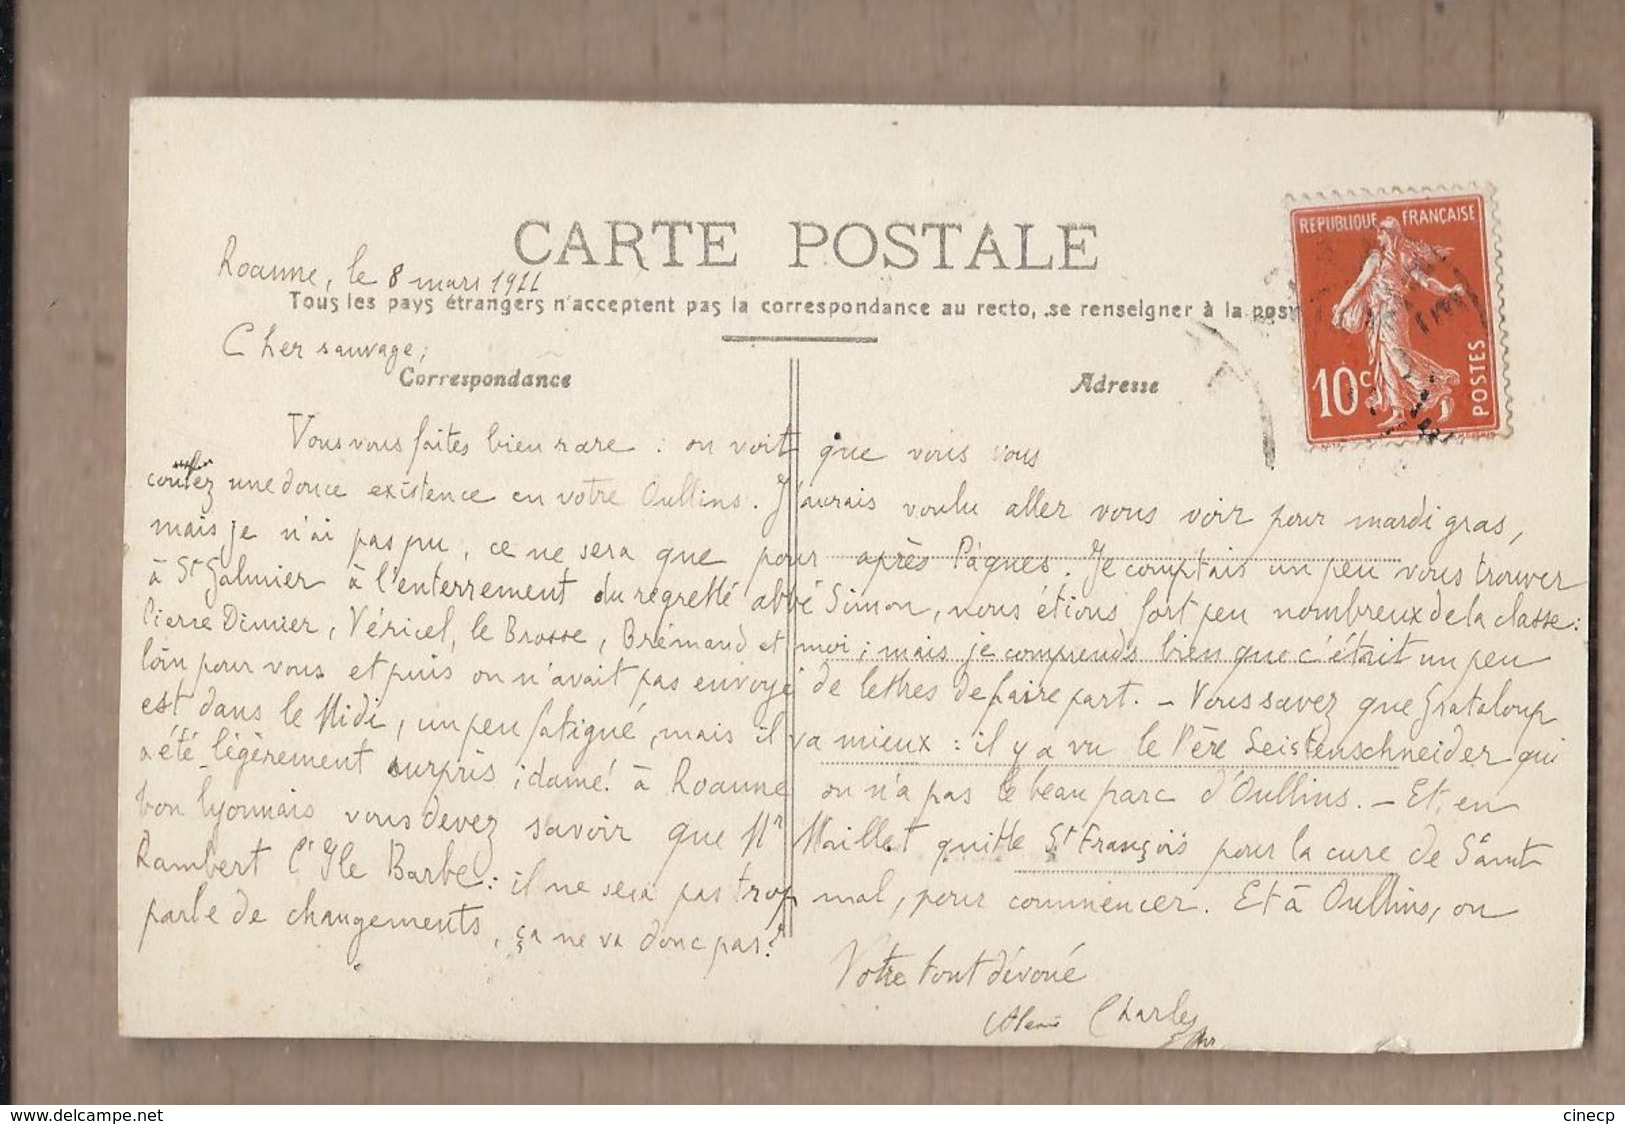 CARTE POSTALE
Roanne, le 8 mars 1911
Tous les pays étrangers n'acceptent pas la correspondance au recto, se renseigner à la poste
Cher sauvage,
Correspondance
Adresse
REPUBLIQUE FRANÇAISE
10c
POSTES
Vous vous faites bien rare : on voit que vous vous
coulez une douce existence en votre Oullins. J'aurais voulu aller vous voir pour mardi gras,
mais je n'ai pas pu, ce ne sera que pour après Pâques. Je comptais un peu vous trouver
à St Galmier à l'enterrement du regretté abbé Simon, nous étions fort peu nombreux de la classe :
Pierre Dimier, Véricel, le Brosse, Brémand et moi ; mais je comprends bien que c'était un peu
loin pour vous et puis on n'avait pas envoyé de lettres de faire part. - Vous savez que Grataloup
est dans le Midi, un peu fatigué, mais il va mieux : il y a vu le Père Leistenschneider qui
a été légèrement surpris ; dame ! à Roanne on n'a pas le beau parc d'Oullins. - Et, en
bon lyonnais vous devez savoir que Mr Maillet quitte St François pour la cure de Saint
Rambert l'Ile Barbe : il ne sera pas trop mal, pour commencer. Et à Oullins, on
parle de changements, ça ne va donc pas ?
Votre tout dévoué
Charles
www.delcampe.net
cinecp